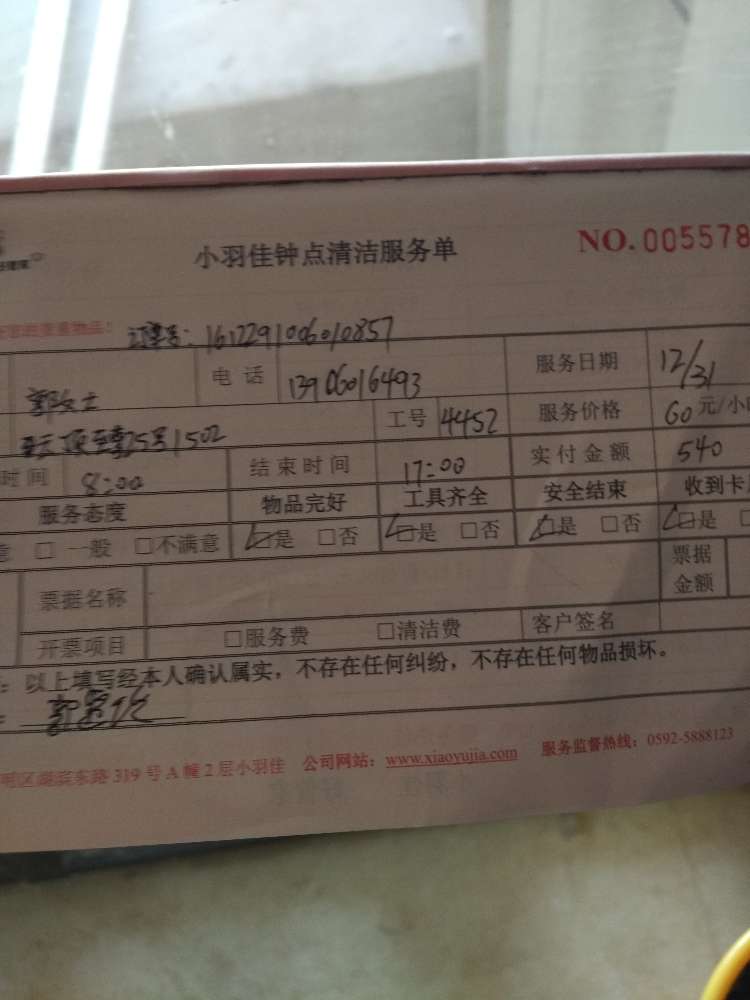 小羽佳钟点清洁服务单 NO.005578
订单号: 1612291006010857
郭女士 电话 13906016493 服务日期 12/31
25号1502 工号 4452 服务价格 60元/小
时间 8:00 结束时间 17:00 实付金额 540
服务态度 物品完好 工具齐全 安全结束 收到卡
意 □一般 □不满意 ☑是 □否 ☑是 □否 ☑是 □否 ☑是
票据名称 票据金额
开票项目 □服务费 □清洁费 客户签名
:以上填写经本人确认属实，不存在任何纠纷，不存在任何物品损坏。
明区湖滨东路319号A幢2层小羽佳 公司网站：www.xiaoyujia.com 服务监督热线：0592-5888123